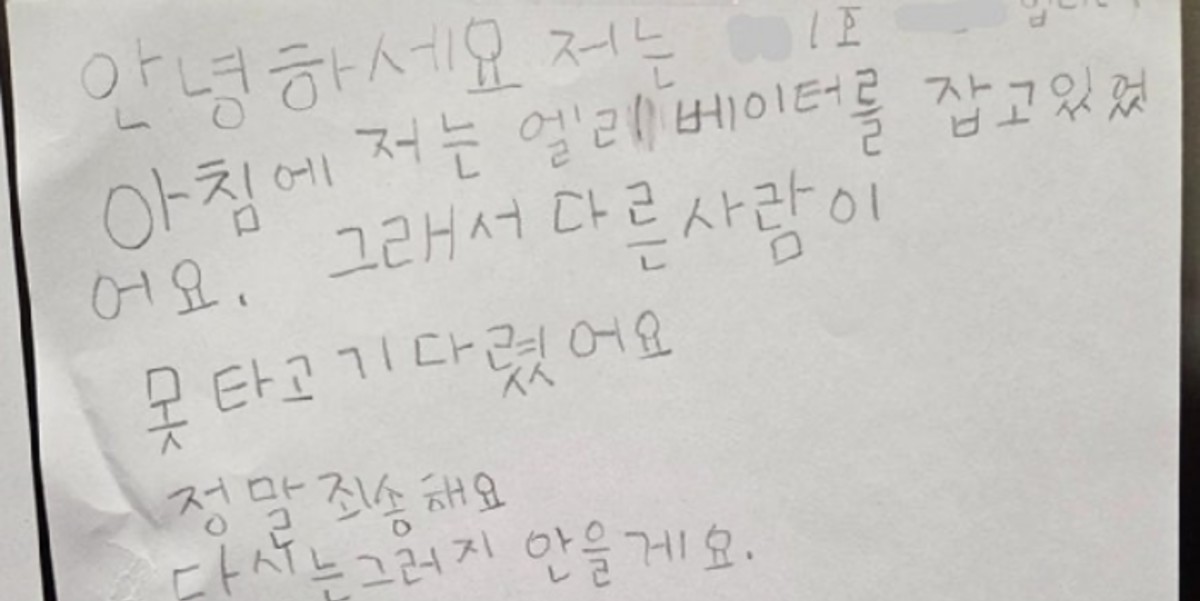 안녕하세요 저는 1호
아침에 저는 엘레베이터를 잡고있었
어요. 그래서 다른사람이
못타고기다렸어요
정말죄송해요
다시는그러지 안을게요.